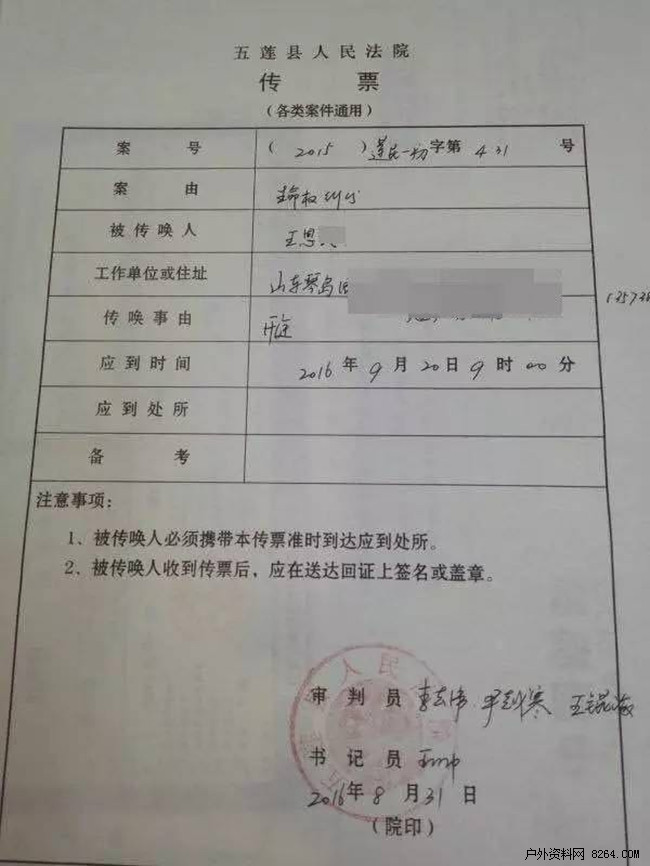 五莲县人民法院
传 票
(各类案件通用)
案 号 ( 2015 ) 莲民一初字第 431 号
案 由 生命权纠纷
被传唤人 王恩
工作单位或住址 山东琴岛
传唤事由 开庭
应到时间 2016年9月20日9时00分
应到处所
备 考
注意事项:
1、被传唤人必须携带本传票准时到达应到处所。
2、被传唤人收到传票后,应在送达回证上签名或盖章。
审 判 员
书 记 员
2016年8月31日
(院印)
户外资料网 8264.com